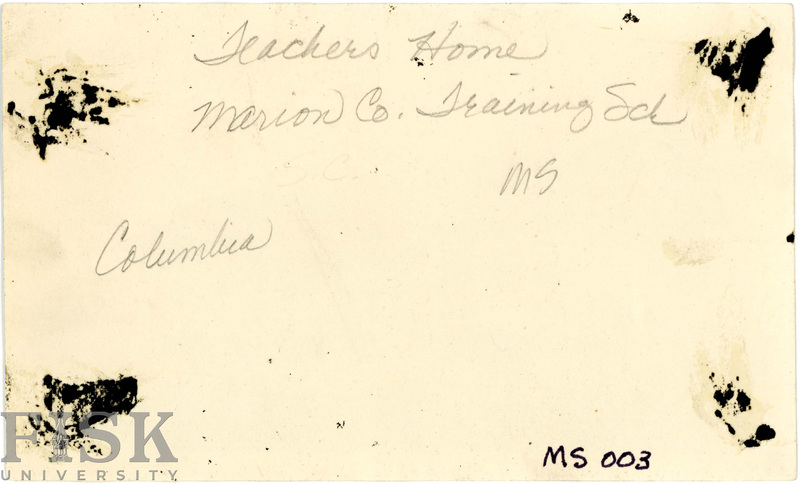 Teachers Home
Marion Co. Training Sch
S.C.
MS
Columbia
FISK
UNIVERSITY
MS 003